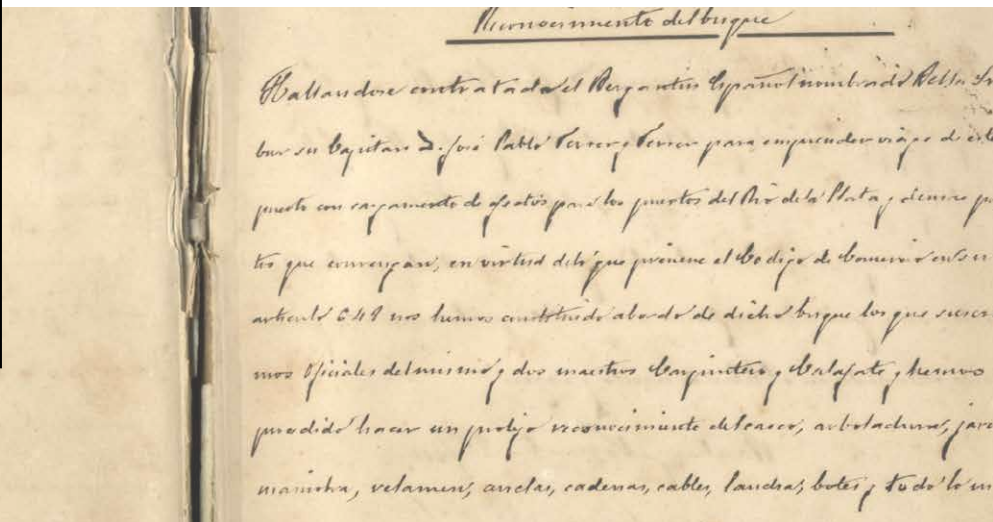 Reconocimiento del buque
Hallandose contratado el Bergantin Español nombrado Bella
bur su Capitan D. José Pablo Ferrer y Ferrer para emprender viaje de este
puerto con cargamento de efectos para los puertos del Rio de la Plata y demas
tos que convengan, en virtud de lo que previene el Codigo de Comercio en su
articulo 648 nos hemos constituido abordo de dicho buque los que
mos Oficiales del mismo y dos maestros Carpintero y Calafate y hemos
procedido hacer un prolijo reconocimiento del casco, arboladura, jarc
maniobra, velamen, anclas, cadenas, cables, lancha, botes y todo lo